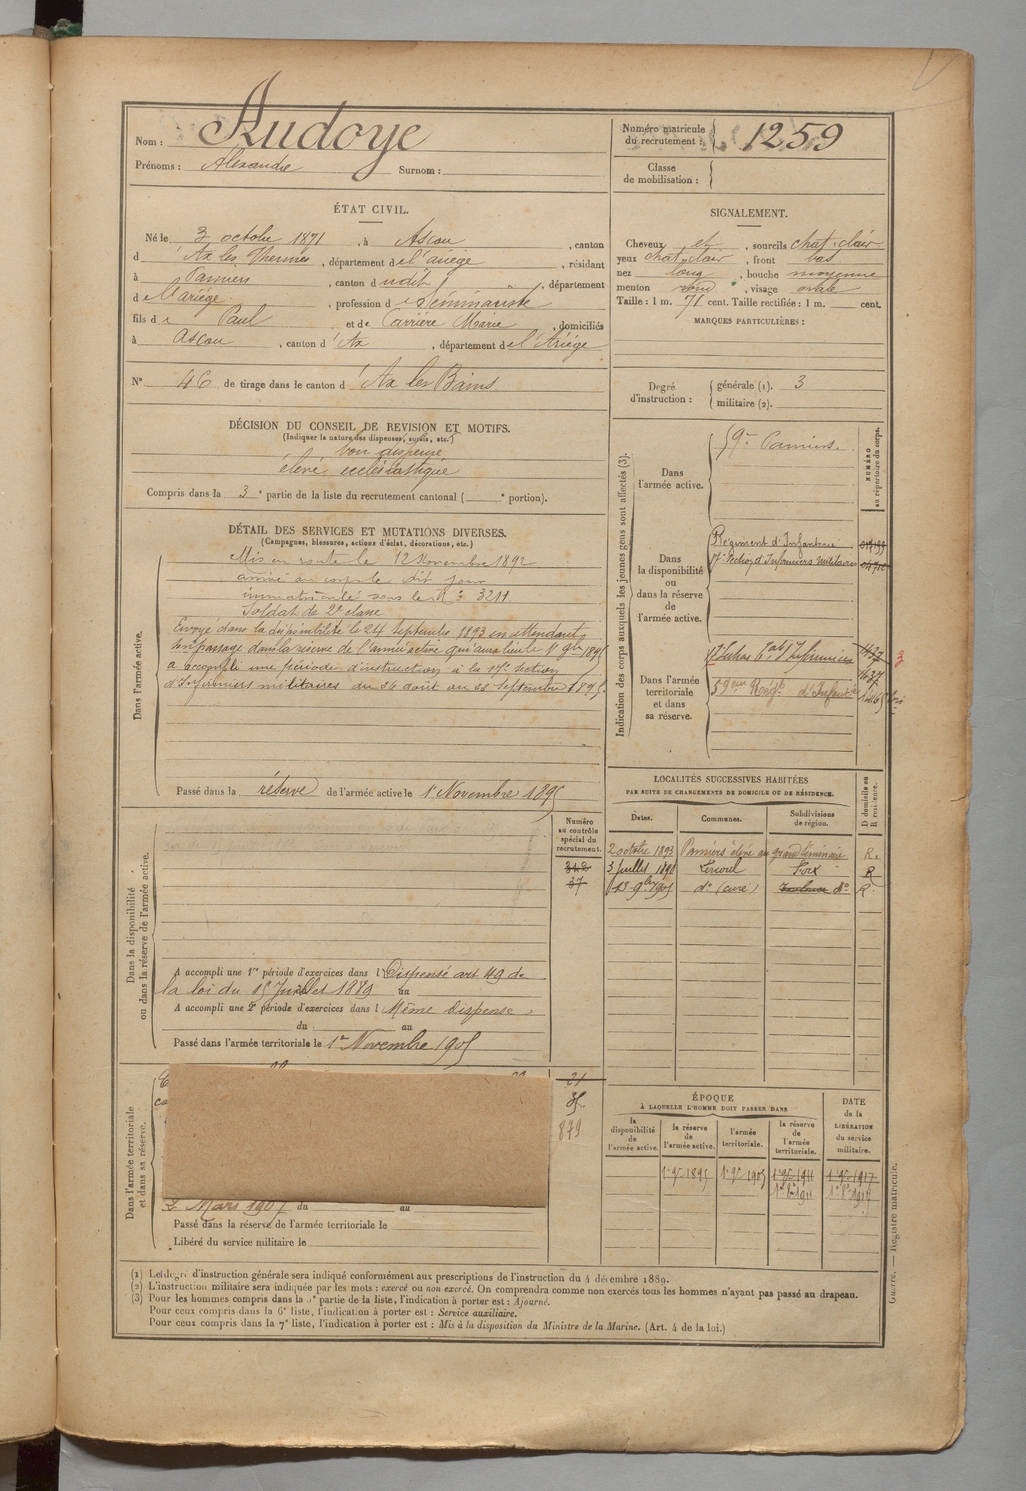 Nom : Audoye
Prénoms : Alexandre Surnom :
Numéro matricule du recrutement : 1259
Classe de mobilisation :
ÉTAT CIVIL.
Né le 3 octobre 1871, à Ascou, canton
d'Ax les Thermes, département de l'ariège, résidant
à Pamiers, canton dudit, département
de l'Ariège, profession de Séminariste
fils de Paul et de Carrière Marie, domiciliés
à Ascou, canton d'Ax, département de l'Ariège
N° 46 de tirage dans le canton d'Ax les Bains
SIGNALEMENT.
Cheveux et, sourcils chat. clair
yeux chat. clair, front bas
nez long, bouche moyenne
menton rond, visage ovale
Taille : 1 m. 71 cent. Taille rectifiée : 1 m. cent.
MARQUES PARTICULIÈRES :
Degré d'instruction : générale (1). 3
militaire (2).
DÉCISION DU CONSEIL DE REVISION ET MOTIFS.
(Indiquer la nature des dispenses, sursis, etc.)
bon dispensé
élève ecclésiastique
Compris dans la 3e partie de la liste du recrutement cantonal ( e portion).
DÉTAIL DES SERVICES ET MUTATIONS DIVERSES.
(Campagnes, blessures, actions d'éclat, décorations, etc.)
Dans l'armée active.
Mis en route le 12 Novembre 1892
arrivé au corps le dit jour
immatriculé sous le N° 3211
Soldat de 2e classe
Envoyé dans la disponibilité le 24 Septembre 1893 en attendant
son passage dans la réserve de l'armée active qui aura lieu le 1r 9bre 1895
a accompli une période d'instruction à la 17e Section
d'Infirmiers militaires du 26 août au 22 Septembre 1895.
Passé dans la réserve de l'armée active le 1r Novembre 1895
Indication des corps auxquels les jeunes gens sont affectés (3).
NUMÉRO au répertoire du corps.
Dans l'armée active.
59e Pamiers.
Dans la disponibilité ou dans la réserve de l'armée active.
Régiment d'Infanterie
17e Section d'Infirmiers Militaires
Dans l'armée territoriale et dans sa réserve.
d'Infirmiers 1437
1637
59eme Régt d'Infanterie
LOCALITÉS SUCCESSIVES HABITÉES
PAR SUITE DE CHANGEMENTS DE DOMICILE OU DE RÉSIDENCE.
D domicile ou R résidence.
Dates. Communes. Subdivisions de région.
2 octobre 1893 Pamiers élève au grand séminaire R.
3 Juillet 1898 Lercoul Foix R
13 9bre 1905 do (curé) do R.
Dans la disponibilité ou dans la réserve de l'armée active.
Numéro au contrôle spécial du recrutement.
342
37
A accompli une 1re période d'exercices dans l Dispensé art 49 de
la loi du 15 Juillet 1889 au
A accompli une 2e période d'exercices dans l Même dispense
du au
Passé dans l'armée territoriale le 1er Novembre 1905
Dans l'armée territoriale et dans sa réserve.
21
35
879
2 Mars 1907 du au
Passé dans la réserve de l'armée territoriale le
Libéré du service militaire le
ÉPOQUE
À LAQUELLE L'HOMME DOIT PASSER DANS
la disponibilité de l'armée active. la réserve de l'armée active. l'armée territoriale. la réserve de l'armée territoriale.
DATE de la LIBÉRATION du service militaire.
1r 9bre 1895 1r 9bre 1905 1r 9bre 1911 1r 9bre 1917
Guerre. — Registre matricule.
(1) Le degré d'instruction générale sera indiqué conformément aux prescriptions de l'instruction du 4 décembre 1889.
(2) L'instruction militaire sera indiquée par les mots : exercé ou non exercé. On comprendra comme non exercés tous les hommes n'ayant pas passé au drapeau.
(3) Pour les hommes compris dans la 5e partie de la liste, l'indication à porter est : Ajourné.
Pour ceux compris dans la 6e liste, l'indication à porter est : Service auxiliaire.
Pour ceux compris dans la 7e liste, l'indication à porter est : Mis à la disposition du Ministre de la Marine. (Art. 4 de la loi.)